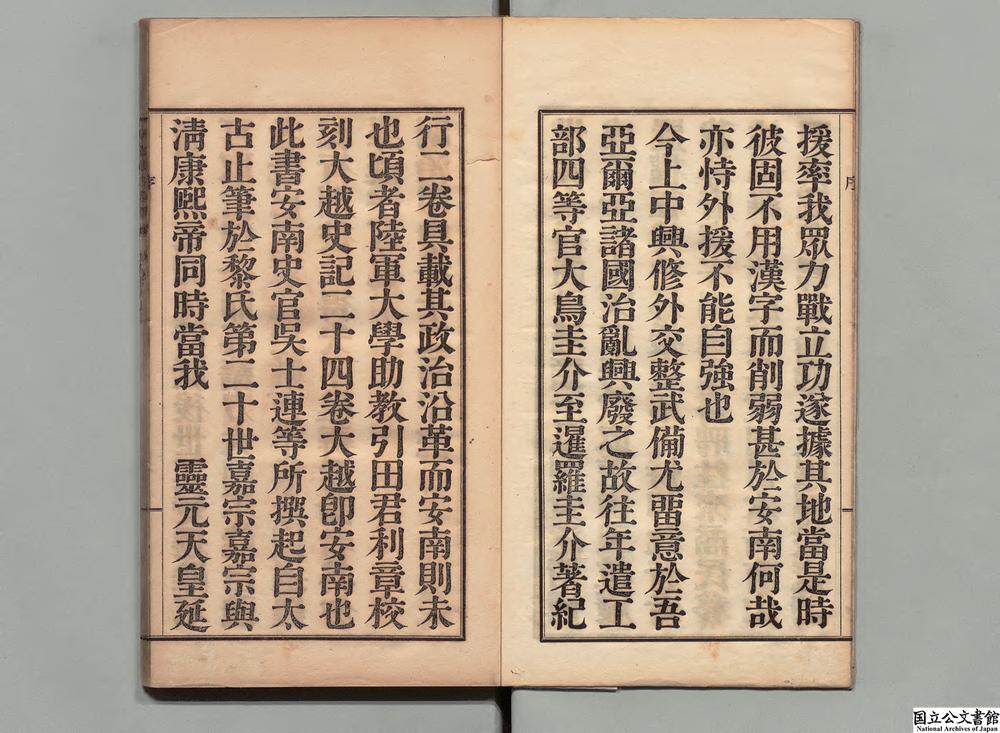 援率我眾力戰立功遂據其地當是時
彼固不用漢字而削弱甚於安南何哉
亦恃外援不能自強也
今上中興修外交整武備尤畱意於吾
亞爾亞諸國治亂興廢之故往年遣工
部四等官大鳥圭介至暹羅圭介著紀
行二卷具載其政治沿革而安南則未
也頃者陸軍大學助教引田君利章校
刻大越史記二十四卷大越卽安南也
此書安南史官吳士連等所撰起自太
古止筆於黎氏第二十世嘉宗嘉宗與
淸康熙帝同時當我 靈元天皇延
序
国立公文書館
National Archives of Japan